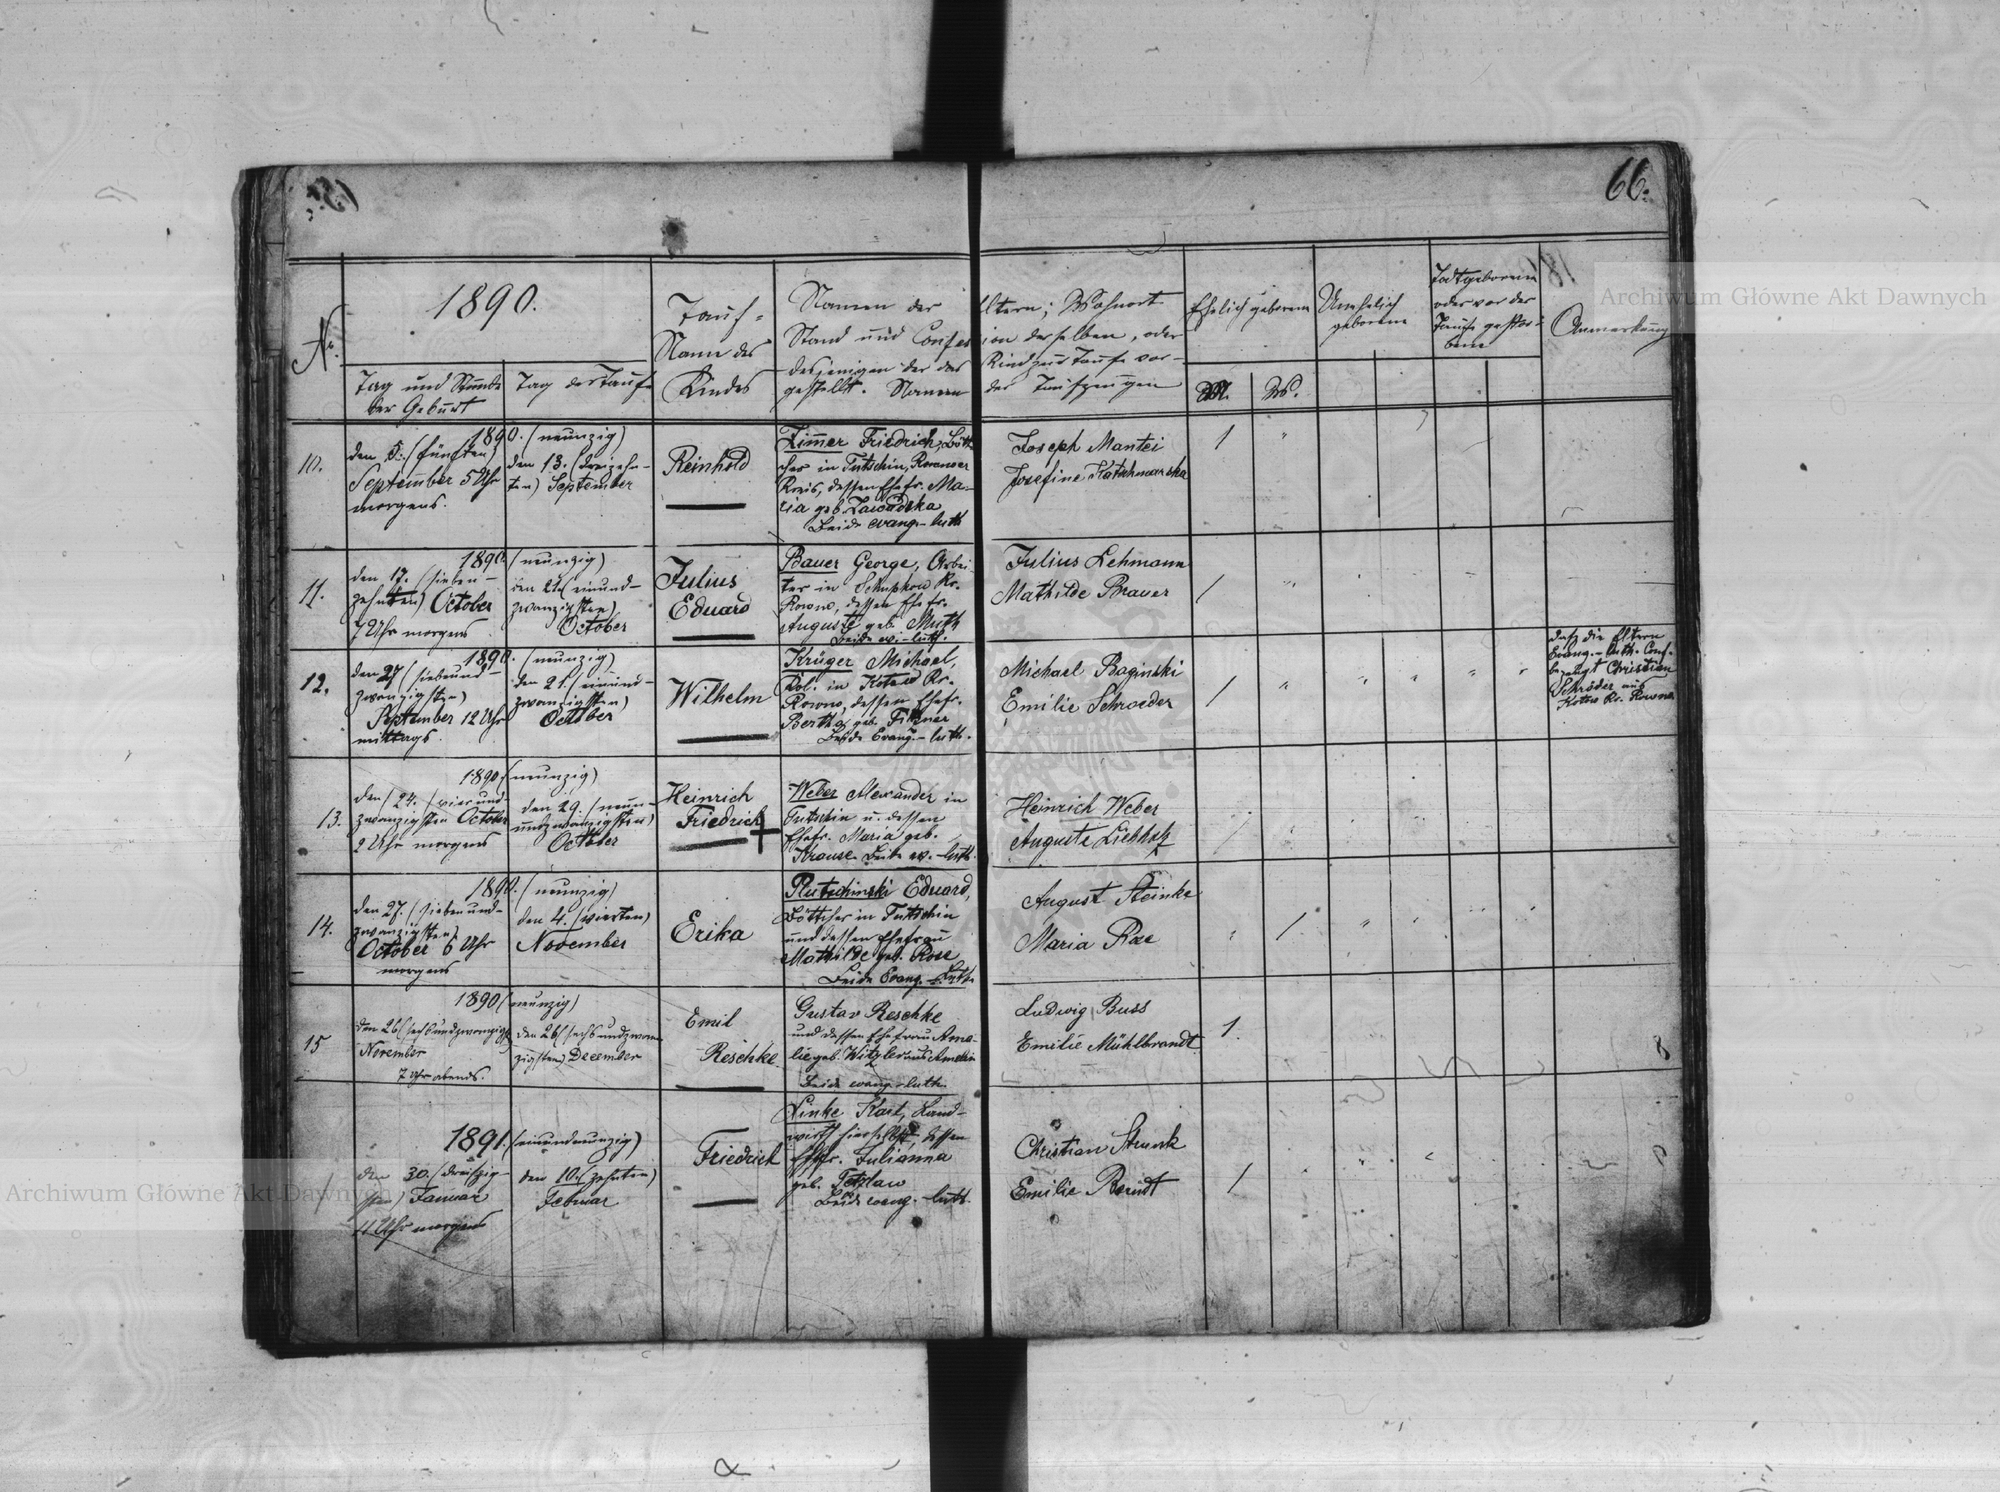 66.
1890.
Nr.
Tag und Stunde
der Geburt
Tag der Taufe
Tauf-
Name des
Kindes
Namen der Eltern; Wohnort
Stand und Confession derselben, oder
desjenigen der das Kind zur Taufe vor-
gestellt. Namen der Taufzeugen
Ehelich geborene
M.
W.
Unehelich
geborene
Todtgeborene
oder vor der
Taufe gestor-
bene
Anmerkung
10.
1890. (neunzig)
den 5. (fünften)
September 5 Uhr
morgens.
den 13. (dreizehn-
ten) September
Reinhold
Zimmer Friedrich, Bött-
cher in Tutschin, Rownoer
Kreis, dessen Ehefr. Ma-
ria geb. Zawadska
Beide evang-luth
Joseph Mantei
Josefine Katschmarska
1
11.
1890. (neunzig)
den 17. (sieben-
zehnten) October
7 Uhr morgens
den 21. (einund-
zwanzigsten)
October
Julius
Eduard
Bauer George, Arbei-
ter in Schupkow Kr.
Rowno, dessen Ehefr.
Auguste geb. Muth
Beide ev-luth
Julius Lehmann
Mathilde Brauer
1
12.
1890. (neunzig)
den 27 (siebenund-
zwanzigsten)
September 12 Uhr
mittags.
den 21. (einund-
zwanzigsten)
October
Wilhelm
Krüger Michael,
Kol. in Kotow Kr.
Rowno, dessen Ehefr.
Bertha geb.
Beide Evang-luth.
Michael Baginski
Emilie Schroeder
1
daß die Eltern
Evang.-luth. Conf.
bezeugt Christian
Schröder aus
Kotow Kr. Rowno
13.
1890 (neunzig)
den (24. (vierund-
zwanzigsten October
2 Uhr morgens
den 29. (neun-
undzwanzigsten)
October
Heinrich
Friedrich
Weber Alexander in
Tutschin u. dessen
Ehefr. Maria geb.
Krause Beide ev.-luth.
Heinrich Weber
Auguste Liebholz
1
14.
1890. (neunzig)
den 27. (siebenund-
zwanzigsten)
October 6 Uhr
morgens
den 4. (vierten)
November
Erika
Rutschinski Eduard,
Böttcher in Tutschin
und dessen Ehefrau
Mathilde geb. Rose
Beide Evang-Luth.
August Steinke
Maria
1
15
1890 (neunzig)
den 26 (sechsundzwanzigst)
November
7 Uhr abends.
den 26 (sechsundzwan-
zigsten) December
Emil
Reschke
Gustav Reschke
und dessen Ehefrau Ama-
lie geb. Witzler aus Amelin
Beide evang-luth.
Ludwig Buss
Emilie Mühlbrandt
1.
1891. (einundneunzig)
1
den 30. (dreißig-
sten) Januar
11 Uhr morgens
den 10. (zehnten)
Februar
Friedrich
Linke Karl, Land-
wirth hierselbst, dessen
Ehefr. Julianna
geb. Tetzlaw
Beide evang.-luth.
Christian Strunk
Emilie Berndt
1
Archiwum Główne Akt Dawnych
Archiwum Główne Akt Dawnych